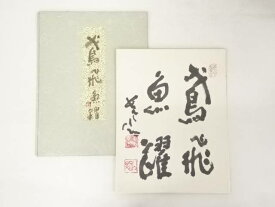 鳶飛魚躍
鳶飛
魚躍